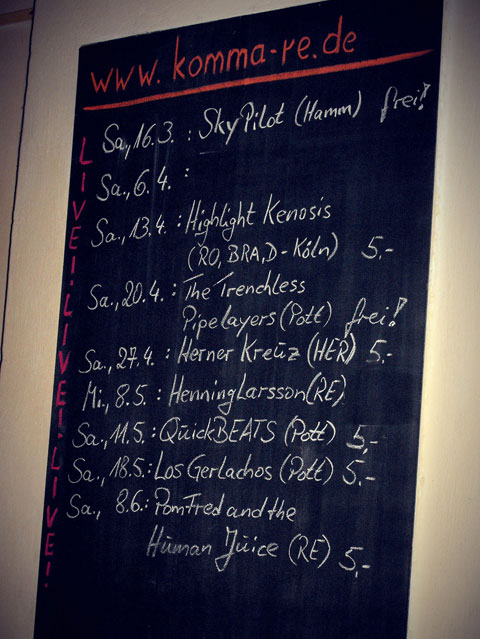 www.komma-re.de
LIVE! LIVE! LIVE!
Sa., 16.3. : SkyPilot (Hamm) frei!
Sa., 6.4. :
Sa., 13.4. : Highlight Kenosis
(RO, BRA, D-Köln) 5.-
Sa., 20.4. : The Trenchless
Pipelayers (Pott) frei!
Sa., 27.4. : Herner Kreuz (HER) 5.-
Mi., 8.5. : Henning Larsson (RE)
Sa., 11.5. : QuickBEATS (Pott) 5,-
Sa., 18.5. : Los Gerlachos (Pott) 5.-
Sa., 8.6. : Pom Fred and the
Human Juice (RE) 5,-